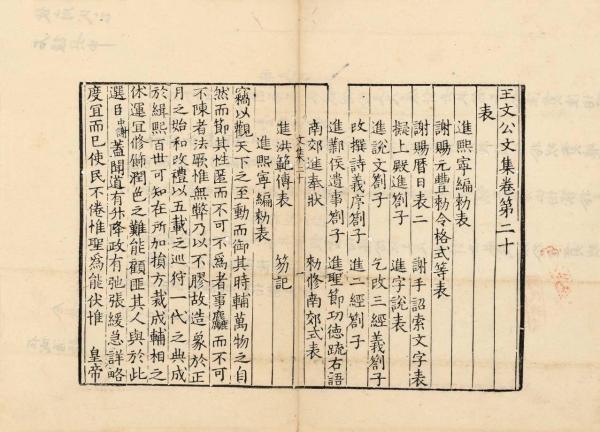 王文公文集卷第二十
表
進熙寧編勑表
謝賜元豐勑令格式等表
謝賜曆日表二 謝手詔索文字表
擬上殿進劄子 進字說表
進說文劄子 乞改三經義劄子
改撰詩義序劄子 進二經劄子
進鄴侯遺事劄子 進聖節功德疏右語
南郊進奉狀 勑修南郊式表
文集二十 一
進洪範傳表 笏記
進熙寧編勑表
竊以觀天下之至動而御其時輔萬物之自
然而節其性匿而不可不為者事麤而不可
不陳者法歌惟無弊乃以不膠故造象於正
月之始和改禮以五載之巡狩一代之典成
於緝熙百世可知在所加損方裁成輔相之
休運宜修飾潤色之難能顧匪其人與於此
選 中謝 蓋聞道有升降政有弛張緩急詳略
度宜而已使民不倦惟聖為能伏惟 皇帝